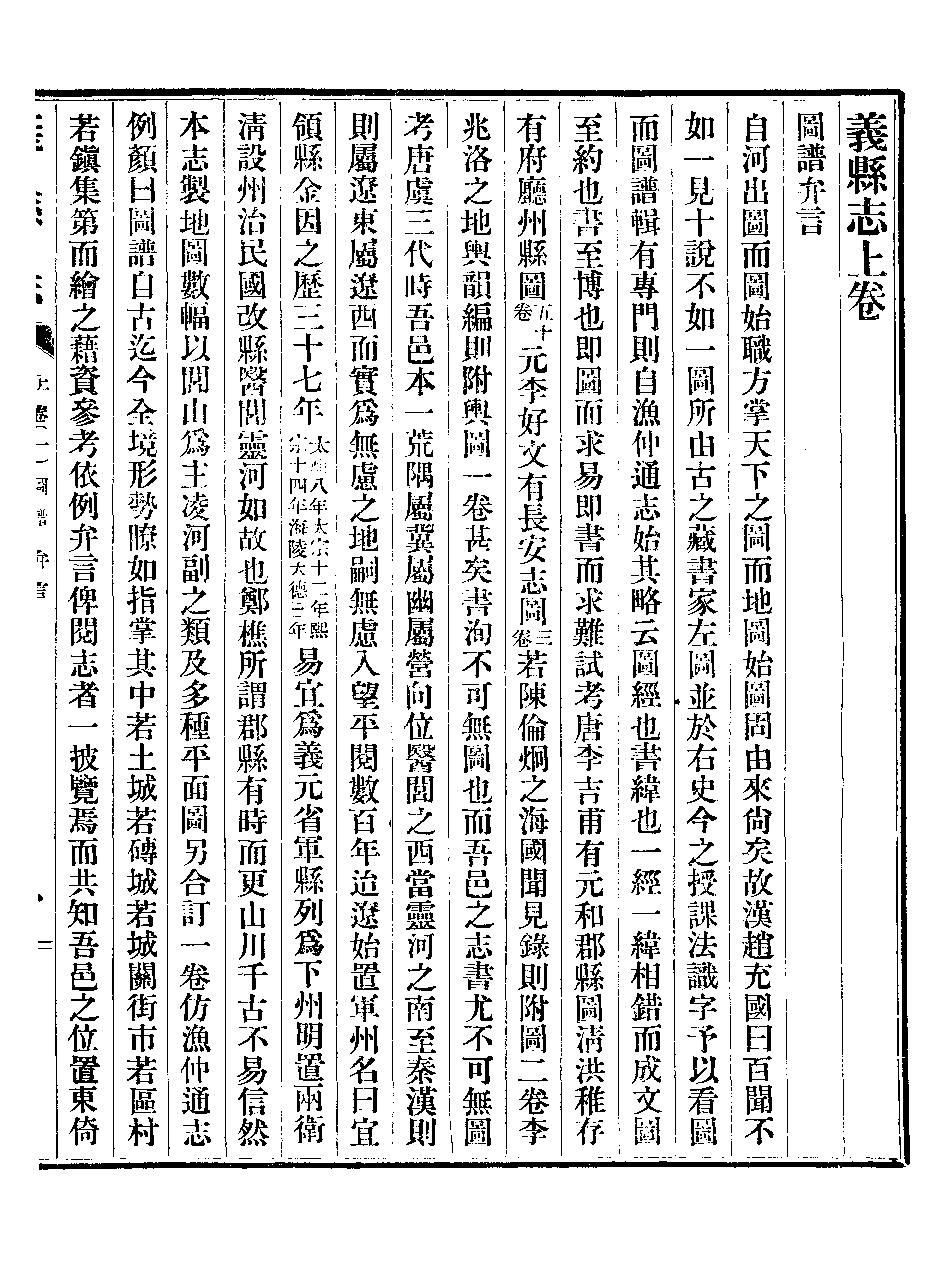 義縣志上卷
圖譜弁言
自河出圖而圖始職方掌天下之圖而地圖始圖固由來尙矣故漢趙充國曰百聞不
如一見十說不如一圖所由古之藏書家左圖並於右史今之授課法識字予以看圖
而圖譜輯有專門則自漁仲通志始其略云圖經也書緯也一經一緯相錯而成文圖
至約也書至博也即圖而求易即書而求難試考唐李吉甫有元和郡縣圖淸洪稚存
有府廳州縣圖五十卷元李好文有長安志圖三卷若陳倫炯之海國聞見錄則附圖二卷李
兆洛之地輿韻編則附輿圖一卷甚矣書洵不可無圖也而吾邑之志書尤不可無圖
考唐虞三代時吾邑本一荒隅屬冀屬幽屬營向位醫閭之西當靈河之南至秦漢則
則屬遼東屬遼西而實爲無慮之地嗣無慮入望平閱數百年迨遼始置軍州名曰宜
領縣金因之歷三十七年太宗十二年熙宗十四年海陵天德三年易宜爲義元省軍縣列爲下州明置兩衛
淸設州治民國改縣醫閭靈河如故也鄭樵所謂郡縣有時而更山川千古不易信然
本志製地圖數幅以閭山爲主凌河副之類及多種平面圖另合訂一卷仿漁仲通志
例顏曰圖譜自古迄今全境形勢瞭如指掌其中若土城若磚城若城關街市若區村
若鎭集第而繪之藉資參考依例弁言俾閱志者一披覽焉而共知吾邑之位置東倚
上卷
圖譜
弁言